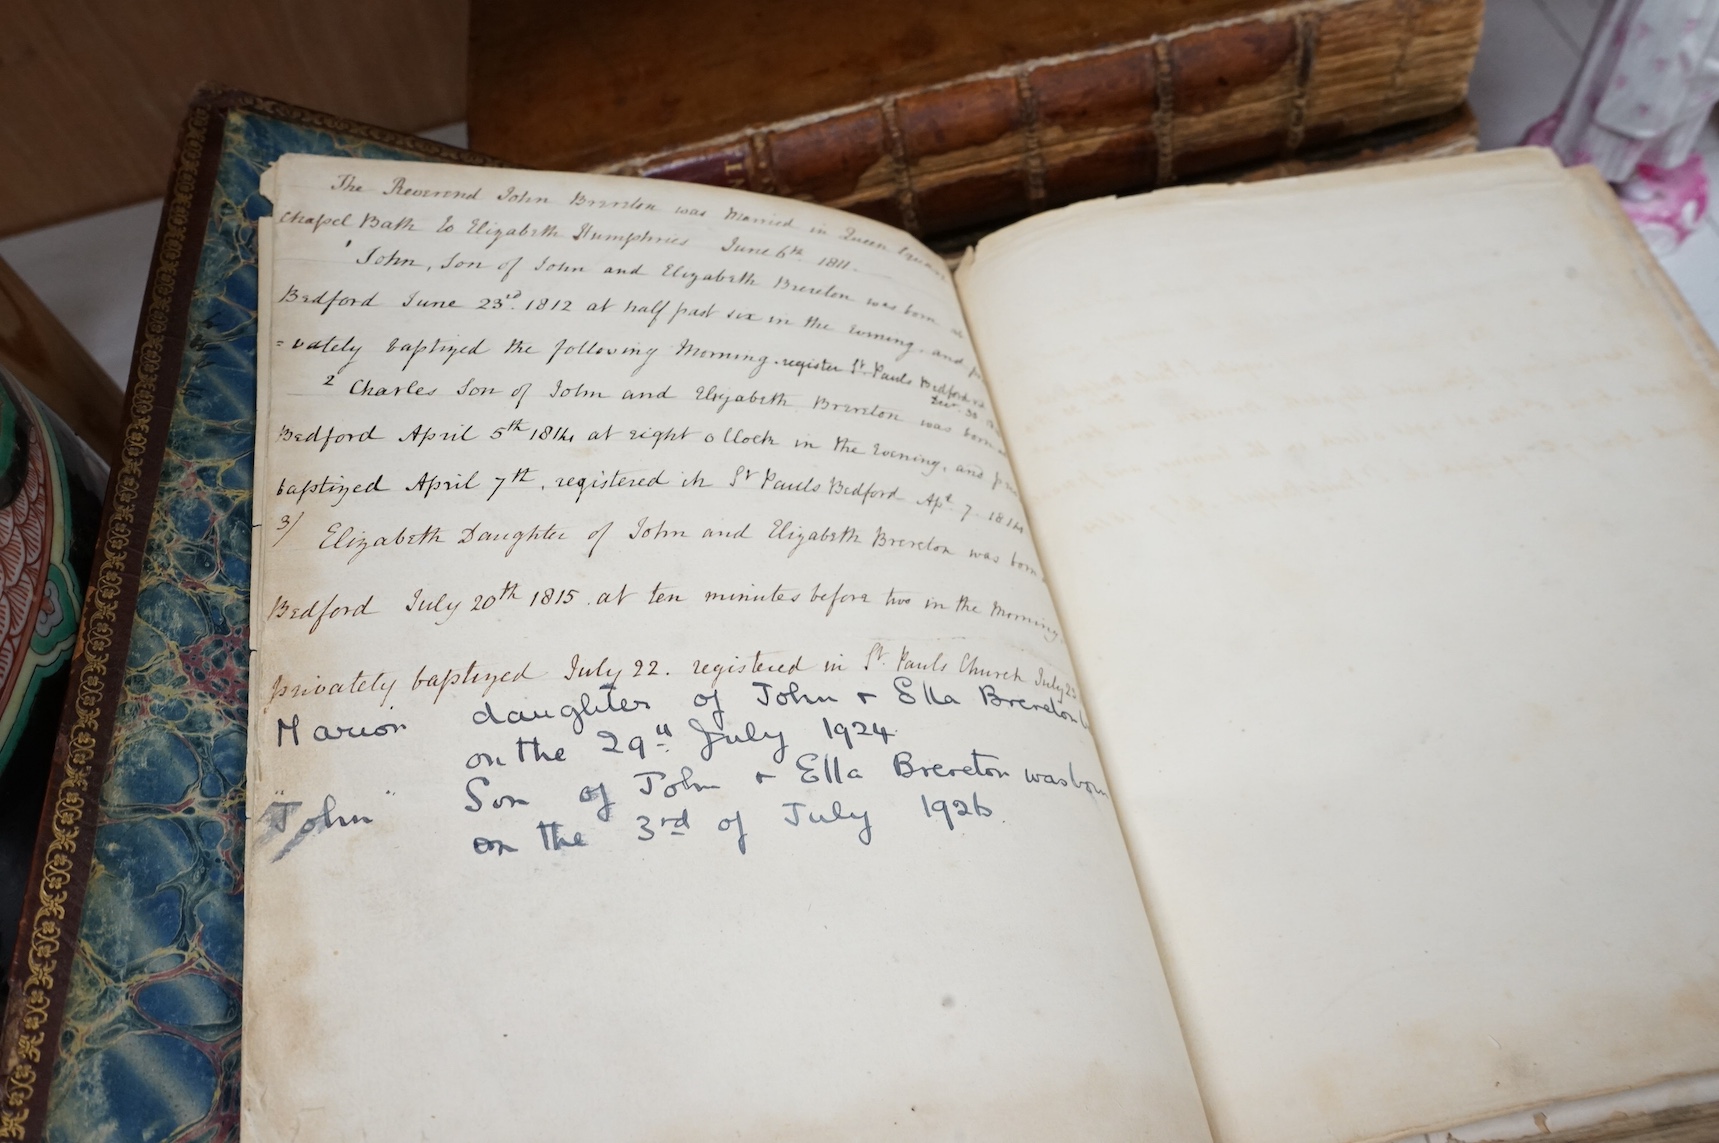 The Reverend John Brereton was Married in Queen Square
Chapel Bath to Elizabeth Humphries June 6th. 1811.
1 John, Son of John and Elizabeth Brereton was born
Bedford June 23rd. 1812 at half past six in the Evening, and
=vately baptized the following Morning. register St. Pauls Bedford
2 Charles Son of John and Elizabeth Brereton was born
Bedford April 5th 1814 at eight o Clock in the Evening, and
baptized April 7th, registered in St Pauls Bedford Apl. 7. 1814
3/ Elizabeth Daughter of John and Elizabeth Brereton was born
Bedford July 20th 1815 at ten minutes before two in the Morning
privately baptized July 22. registered in St. Pauls Church July
Marion daughter of John + Ella Brereton
on the 29th July 1924
"John" Son of John + Ella Brereton was born
on the 3rd of July 1926.